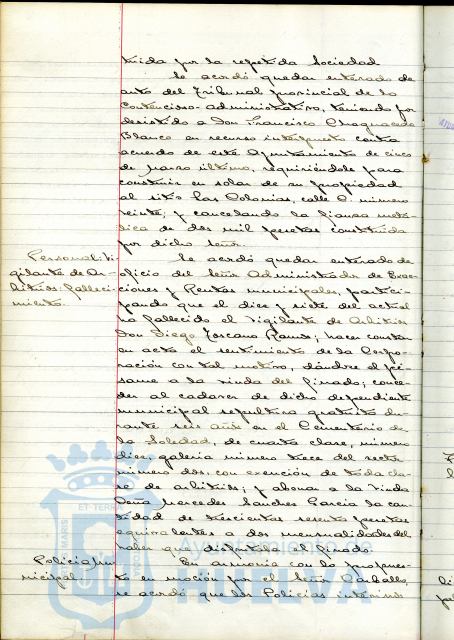 tuida por la repetida Sociedad
Se acordó quedar enterado de
auto del Tribunal provincial de lo
Contencioso-administrativo, teniendo por
desistido a Don Francisco Chaguaceda
Blanco en recurso interpuesto contra
acuerdo de este Ayuntamiento de cinco
de marzo último, requiriéndole para
construir en solar de su propiedad
al sitio las Colonias, calle C. número
veinte; y cancelando la fianza metá-
lica de dos mil pesetas constituida
por dicho señor.
Personal: Vi-
gilante de Ar-
bitrios: falleci-
miento.
Se acordó quedar enterado de
oficio del Señor Administrador de Exac-
ciones y Rentas municipales, partici-
pando que el diez y siete del actual
ha fallecido el Vigilante de Arbitrios
Don Diego Toscano Ramos; hacer constar
en acta el sentimiento de la Corpo-
ración con tal motivo, dándose el pé-
same a la viuda del finado; conce-
der al cadaver de dicho dependiente
municipal sepultura gratuita du-
rante seis años en el Cementerio de
la Soledad, de cuarta clase, número
diez, galeria número trece del recto
número dos, con exención de toda cla-
se de arbitrios; y abonar a la viuda
Doña Mercedes Sanchez Garcia la can-
tidad de trescientas sesenta pesetas
equivalentes a dos mensualidades del
haber que disfrutaba el finado.
Policia mu-
nicipal:
En armonia con lo propues-
to en moción por el Señor Carballo,
se acordó que los Policias interinos
ET TERRA
MARIS
Ayuntamiento de
HUELVA